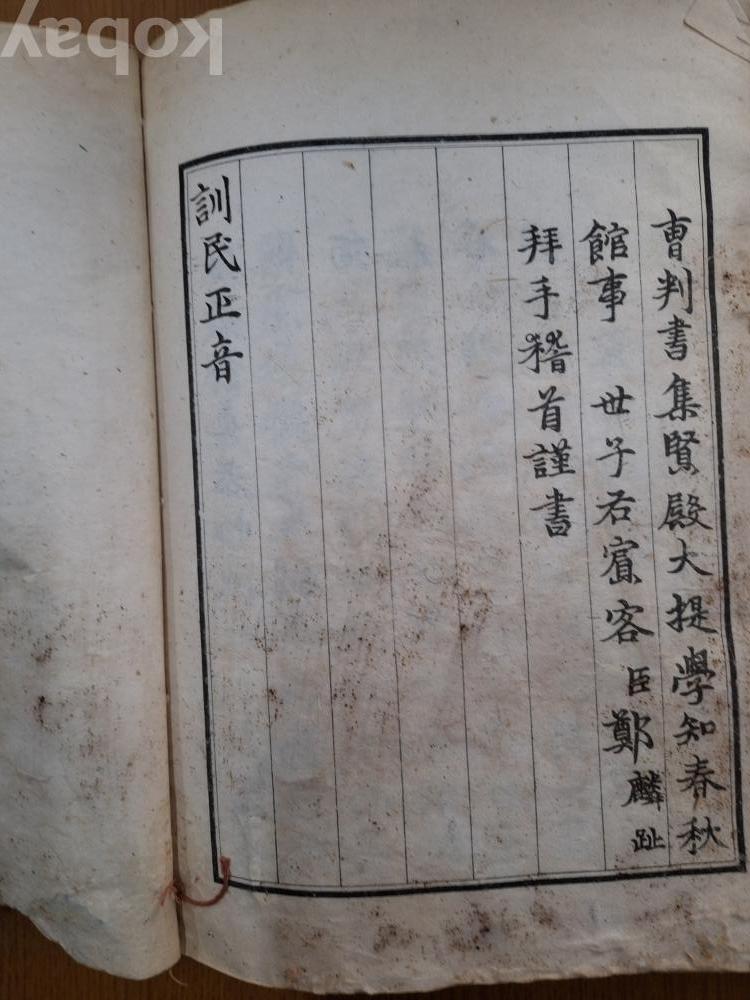 曺判書集賢殿大提學知春秋
館事 世子右賔客臣鄭麟趾
拜手稽首謹書
訓民正音
kobay